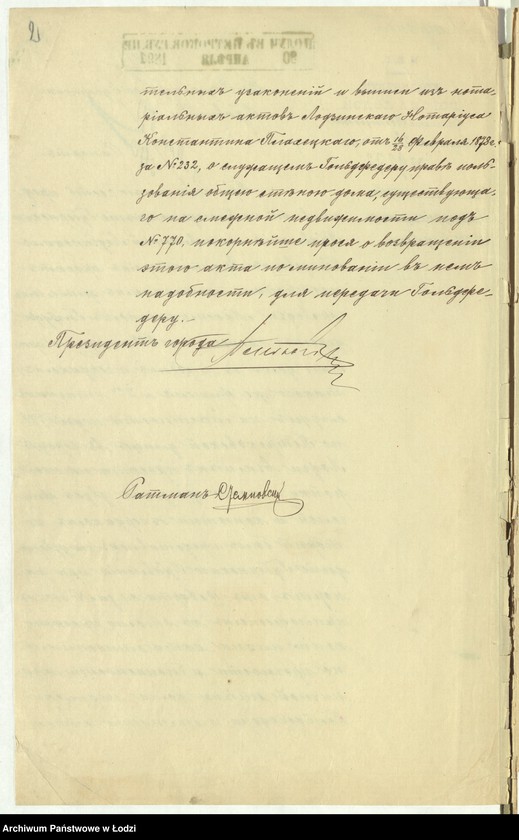 2
тельныхъ узаконеній и выписи изъ нота-
ріальныхъ актовъ Лодзинскаго Нотаріуса
Константина Плахецкаго, отъ 16/28 Февраля 1873 г.
за № 232, о служащемъ Гольдфедеру правѣ поль-
зованія общею стѣною дома, существующа-
го на смежной недвижимости подъ
№ 770, покорнѣйше прося о возвращеніи
этого акта по минованіи въ немъ
надобности, для передачи Гольдфе-
деру.
Президентъ города
Ратманъ
Archiwum Państwowe w Łodzi